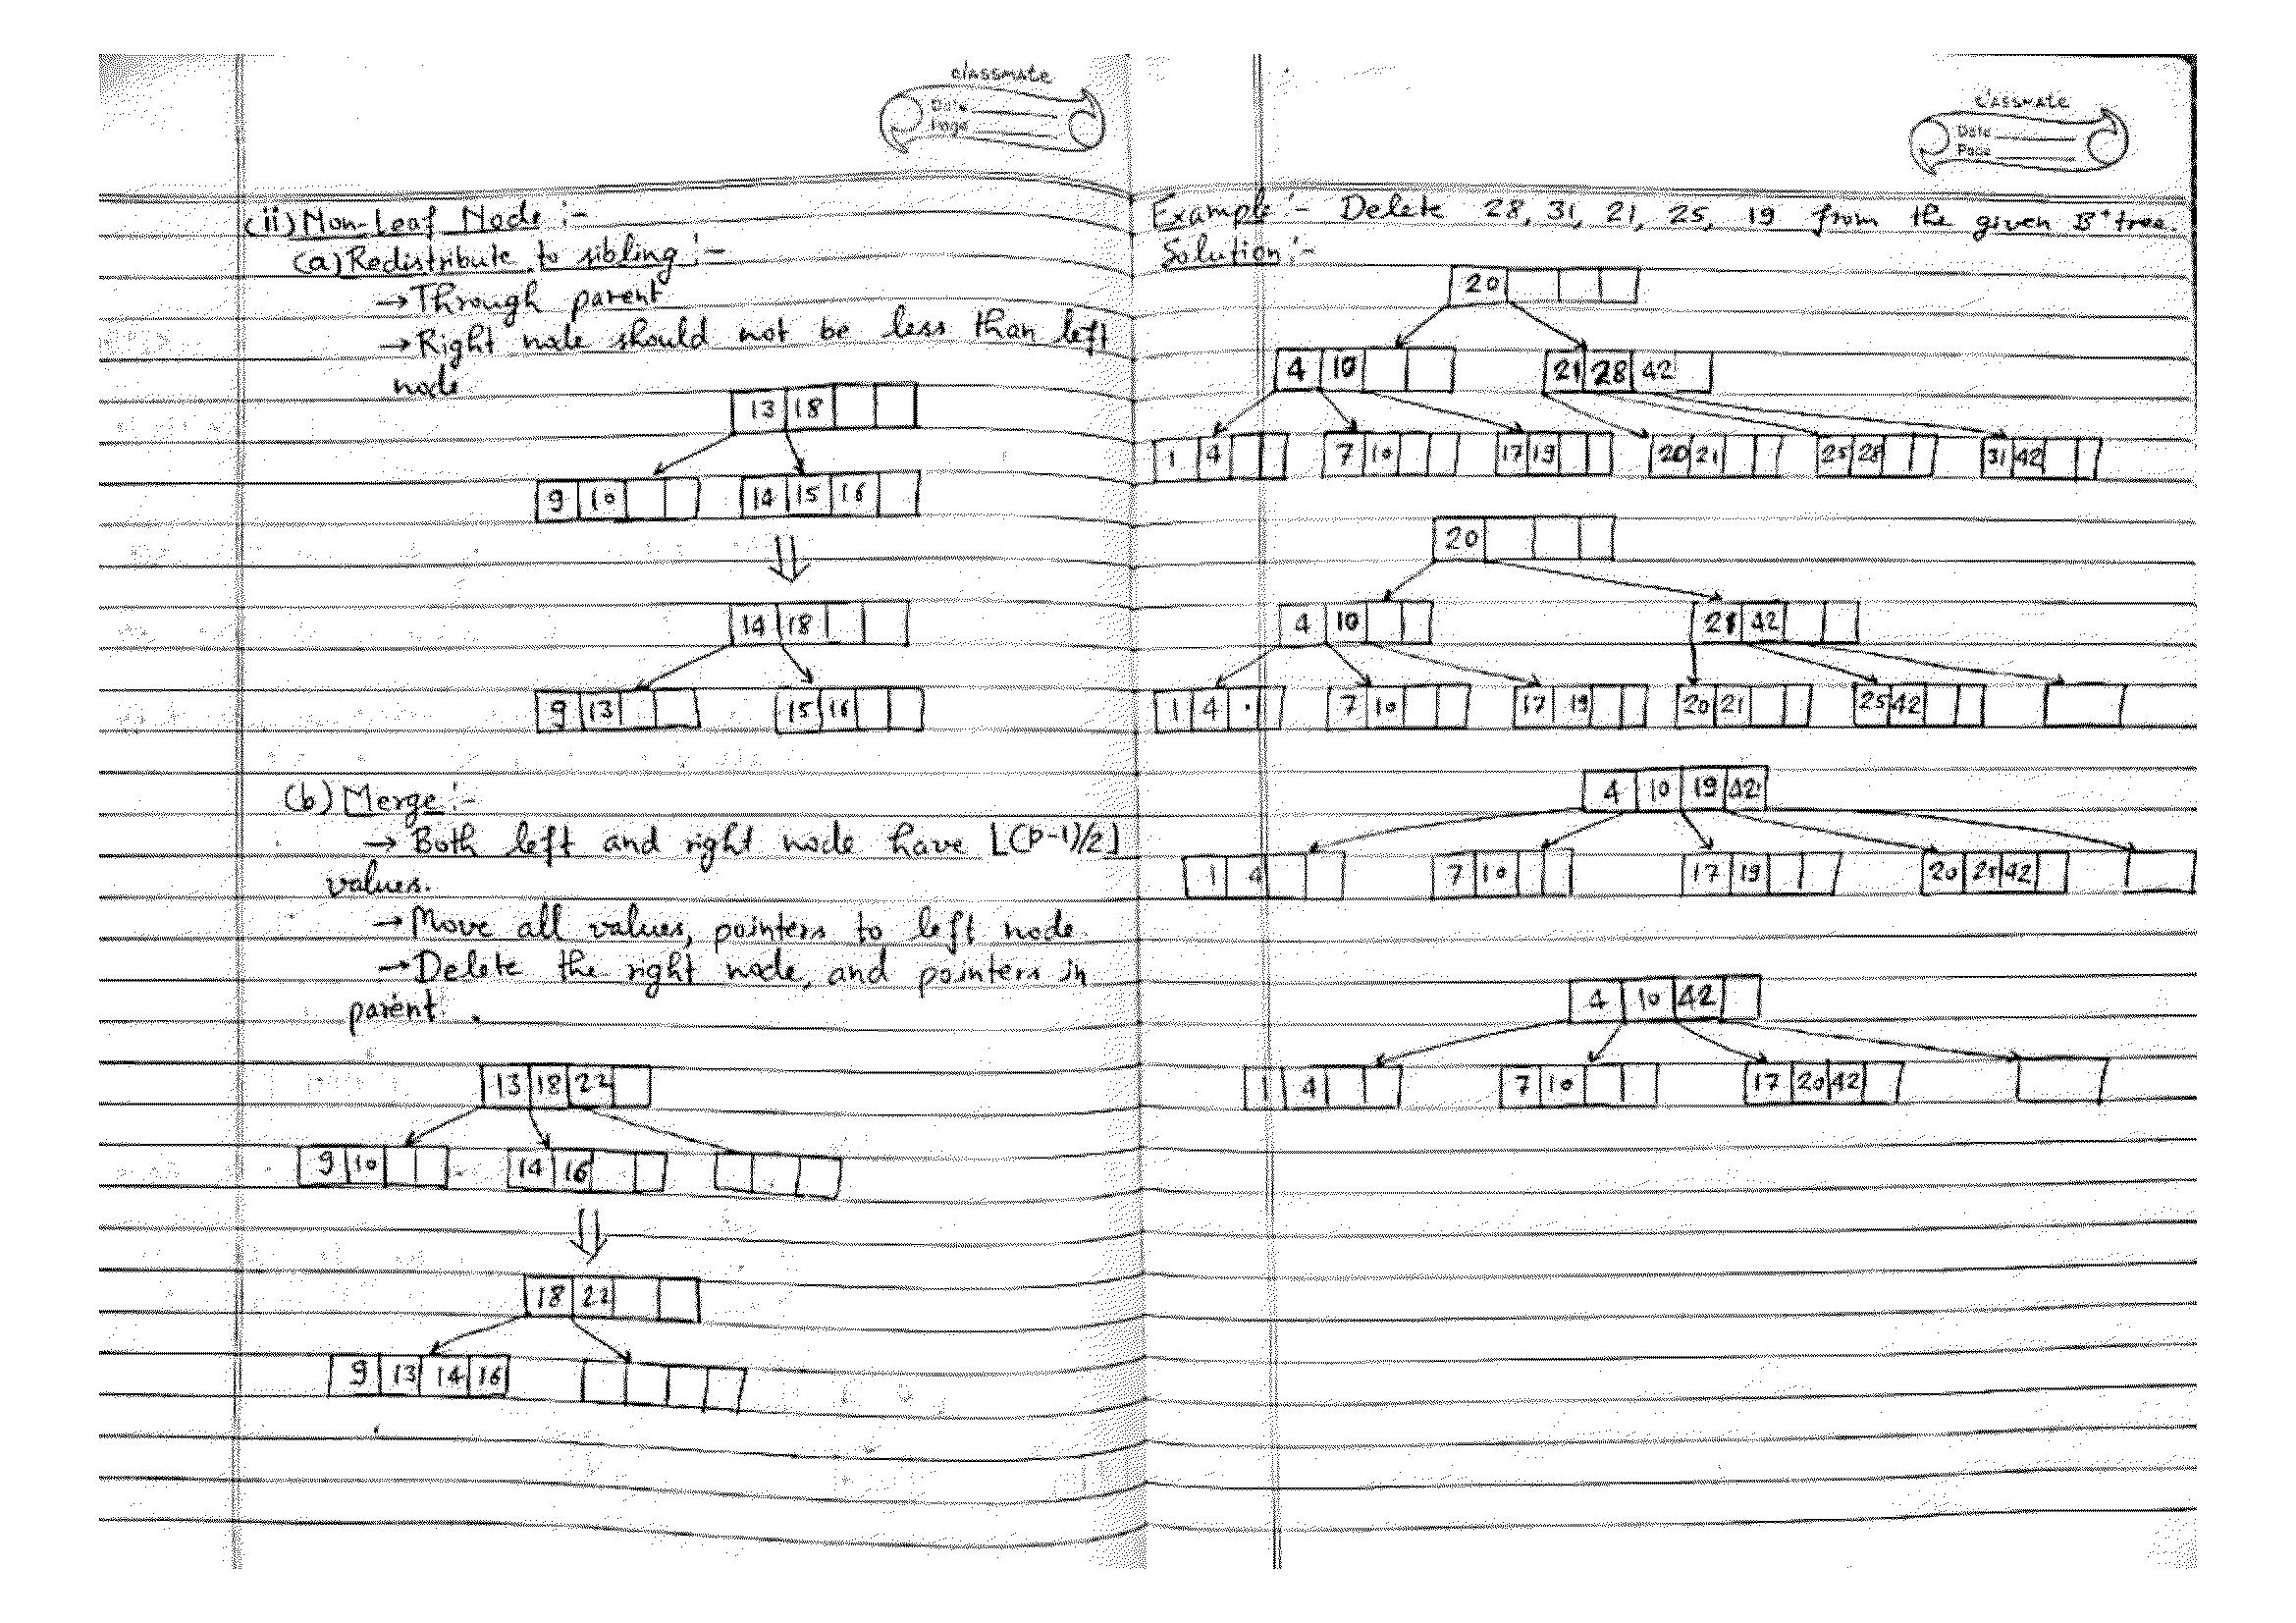 classmate
Date
Page
(ii) Non-Leaf Node :-
(a) Redistribute to sibling :-
→ Through parent
→ Right node should not be less than left
node
13 18
9 10
14 15 16
14 18
9 13
15 16
(b) Merge :-
→ Both left and right node have ⌊(P-1)/2⌋
values.
→ Move all values, pointers to left node.
→ Delete the right node, and pointers in
parent.
13 18 22
9 10
14 16
18 22
9 13 14 16
classmate
Date
Page
Example :- Delete 28, 31, 21, 25, 19 from the given B+ tree.
Solution :-
20
4 10
21 28 42
1 4
7 10
17 19
20 21
25 28
31 42
20
4 10
21 42
1 4
7 10
17 19
20 21
25 42
4 10 19 42
1 4
7 10
17 19
20 25 42
4 10 42
1 4
7 10
17 20 42